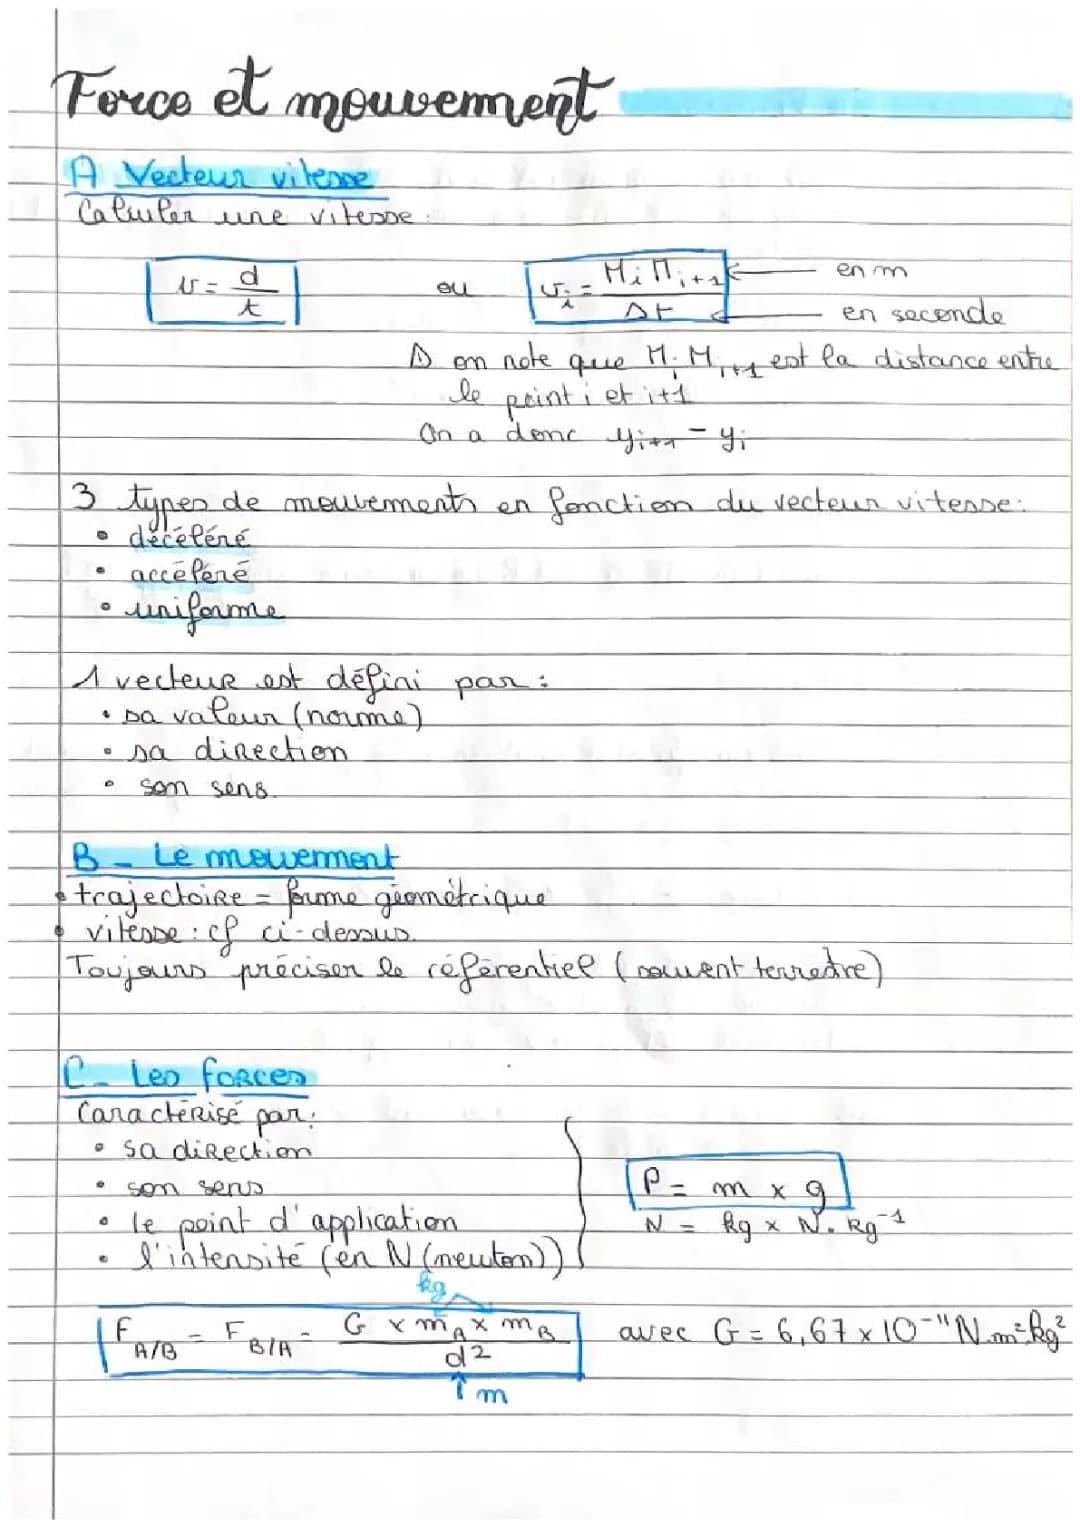 Force et mouvement
A Vecteur vitesse
Calculer une vitesse :
v = d/t ou vi = MiMi+1/Δt ← en m
← en seconde
Δ on note que MiMi+1 est la distance entre
le point i et i+1
On a donc yi+1 - yi
3 types de mouvements en fonction du vecteur vitesse :
• décéléré
• accéléré
• uniforme
1 vecteur est défini par :
• sa valeur (norme)
• sa direction
• son sens.
B - Le mouvement
• trajectoire = forme géométrique
• vitesse : cf ci-dessus.
Toujours préciser le référentiel (souvent terrestre)
C - Les forces
Caractérisé par :
• sa direction
• son sens
• le point d'application
• l'intensité (en N (newton))
P = m x g
N = kg x N.kg⁻¹
kg
F A/B = F B/A = G x mA x mB / d² avec G = 6,67 x 10⁻¹¹ N.m².kg²
↑ m